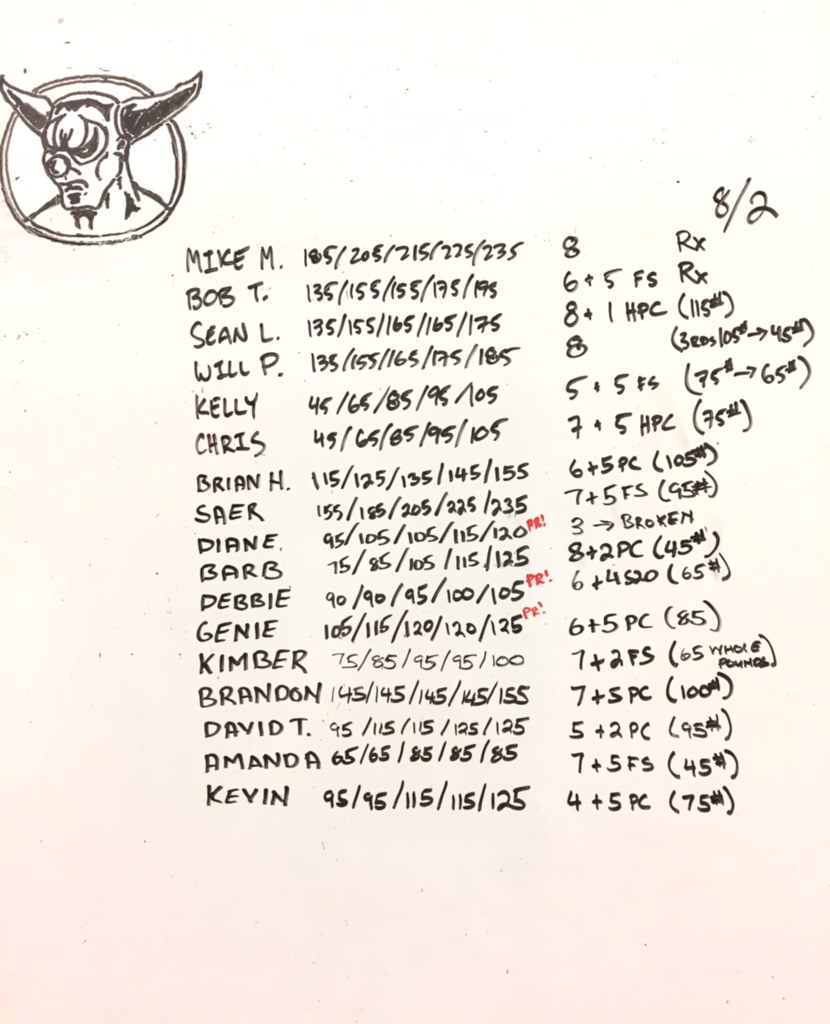 8/2
MIKE M. 185/205/215/225/235 8 Rx
BOB T. 135/155/155/175/195 6+5 FS Rx
SEAN L. 135/155/165/165/175 8+1 HPC (115#)
WILL P. 135/155/165/175/185 8 (3RDS 105#→45#)
KELLY 45/65/85/95/105 5+5 FS (75#→65#)
CHRIS 45/65/85/95/105 7+5 HPC (75#)
BRIAN H. 115/125/135/145/155 6+5PC (105#)
SAER 155/185/205/225/235 7+5FS (95#)
DIANE 95/105/105/115/120 PR! 3 → BROKEN
BARB 75/85/105/115/125 8+2PC (45#)
DEBBIE 90/90/95/100/105 PR! 6+4S2O (65#)
GENIE 105/115/120/120/125 PR! 6+5PC (85)
KIMBER 75/85/95/95/100 7+2FS (65 WHOLE POUNDS)
BRANDON 145/145/145/145/155 7+5PC (100#)
DAVID T. 95/115/115/125/125 5+2PC (95#)
AMANDA 65/65/85/85/85 7+5FS (45#)
KEVIN 95/95/115/115/125 4+5PC (75#)